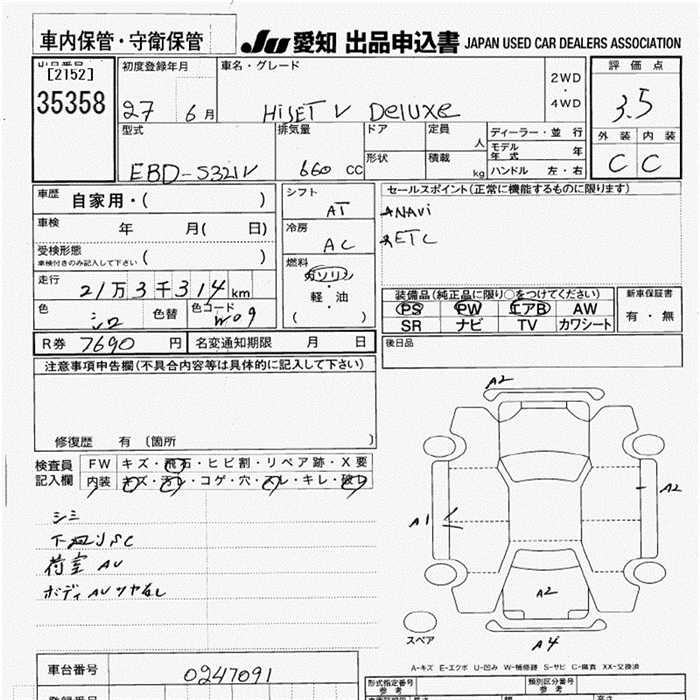 車内保管・守衛保管
JU 愛知 出品申込書 JAPAN USED CAR DEALERS ASSOCIATION
出品番号 初度登録年月 車名・グレード 2WD・4WD 評価点
[2152]
35358
27 6月 HiSET V DeLUXE 3.5
型式 排気量 ドア 定員 人 ディーラー・並行 外装 内装
モデル年式 年
EBD-S321V 660 CC 形状 積載 kg ハンドル 左・右 C C
車歴 自家用・( ) シフト AT セールスポイント(正常に機能するものに限ります)
車検 年 月( 日) 冷房 AC ANAVi
受検形態 ( ) ETC
車検付きのみ記入して下さい
走行 21万3千314km 燃料 ガソリン・軽・油 ( )
装備品(純正品に限り○をつけてください) 新車保証書
色 シロ 色替 色コード W09 PS PW エアB AW 有・無
SR ナビ TV カワシート
R券 7690円 名変通知期限 月 日 後日品
注意事項申告欄(不具合内容等は具体的に記入して下さい)
修復歴 有 〔箇所 〕
検査員記入欄 FW キズ・飛石・ヒビ割・リペア跡・X要
内装 キズ・汚れ・コゲ・穴・スレ・キレ・破レ
シミ
下廻りSC
荷室AU
ボディAUツヤなし
A2
A1
A2
A2
A4
スペア
A-キズ E-エクボ U-凹み W-補修跡 S-サビ C-腐食 XX-交換済
車台番号 0247091
形式指定番号 参考 類別区分番号 参考